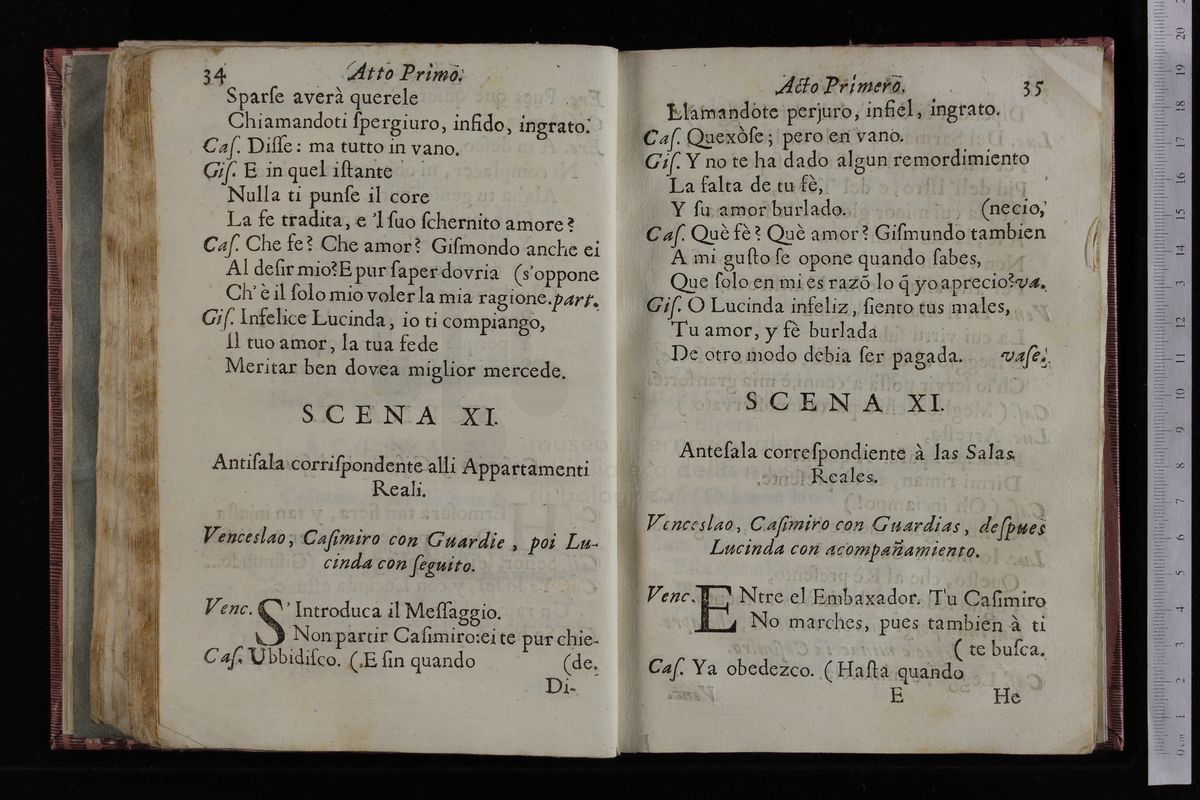 34 Atto Primo.
Sparſe averà querele
Chiamandoti ſpergiuro, infido, ingrato.
Caſ. Diſſe: ma tutto in vano.
Giſ. E in quel iſtante
Nulla ti punſe il core
La fe tradita, e 'l ſuo ſchernito amore?
Caſ. Che fe? Che amor? Giſmondo anche ei
Al deſir mio? E pur ſaper dovria (s'oppone
Ch' è il ſolo mio voler la mia ragione. part.
Giſ. Infelice Lucinda, io ti compiango,
Il tuo amor, la tua fede
Meritar ben dovea miglior mercede.
SCENA XI.
Antiſala corriſpondente alli Appartamenti
Reali.
Venceslao, Caſimiro con Guardie, poi Lu-
cinda con ſeguito.
Venc. S' Introduca il Meſſaggio.
Non partir Caſimiro: ei te pur chie-
Caſ. Ubbidiſco. (E ſin quando (de.
Di-
Acto Primero. 35
Llamandote perjuro, infiel, ingrato.
Caſ. Quexòſe; pero en vano.
Giſ. Y no te ha dado algun remordimiento
La falta de tu fè,
Y ſu amor burlado. (necio,
Caſ. Què fè? Què amor? Giſmundo tambien
A mi guſto ſe opone quando ſabes,
Que ſolo en mi es razõ lo q̃ yo aprecio? va.
Giſ. O Lucinda infeliz, ſiento tus males,
Tu amor, y fè burlada
De otro modo debia ſer pagada. vaſe.
SCENA XI.
Anteſala correſpondiente à las Salas
Reales.
Venceslao, Caſimiro con Guardias, deſpues
Lucinda con acompañamiento.
Venc. ENtre el Embaxador. Tu Caſimiro
No marches, pues tambien à ti
( te buſca.
Caſ. Ya obedezco. (Haſta quando
E He